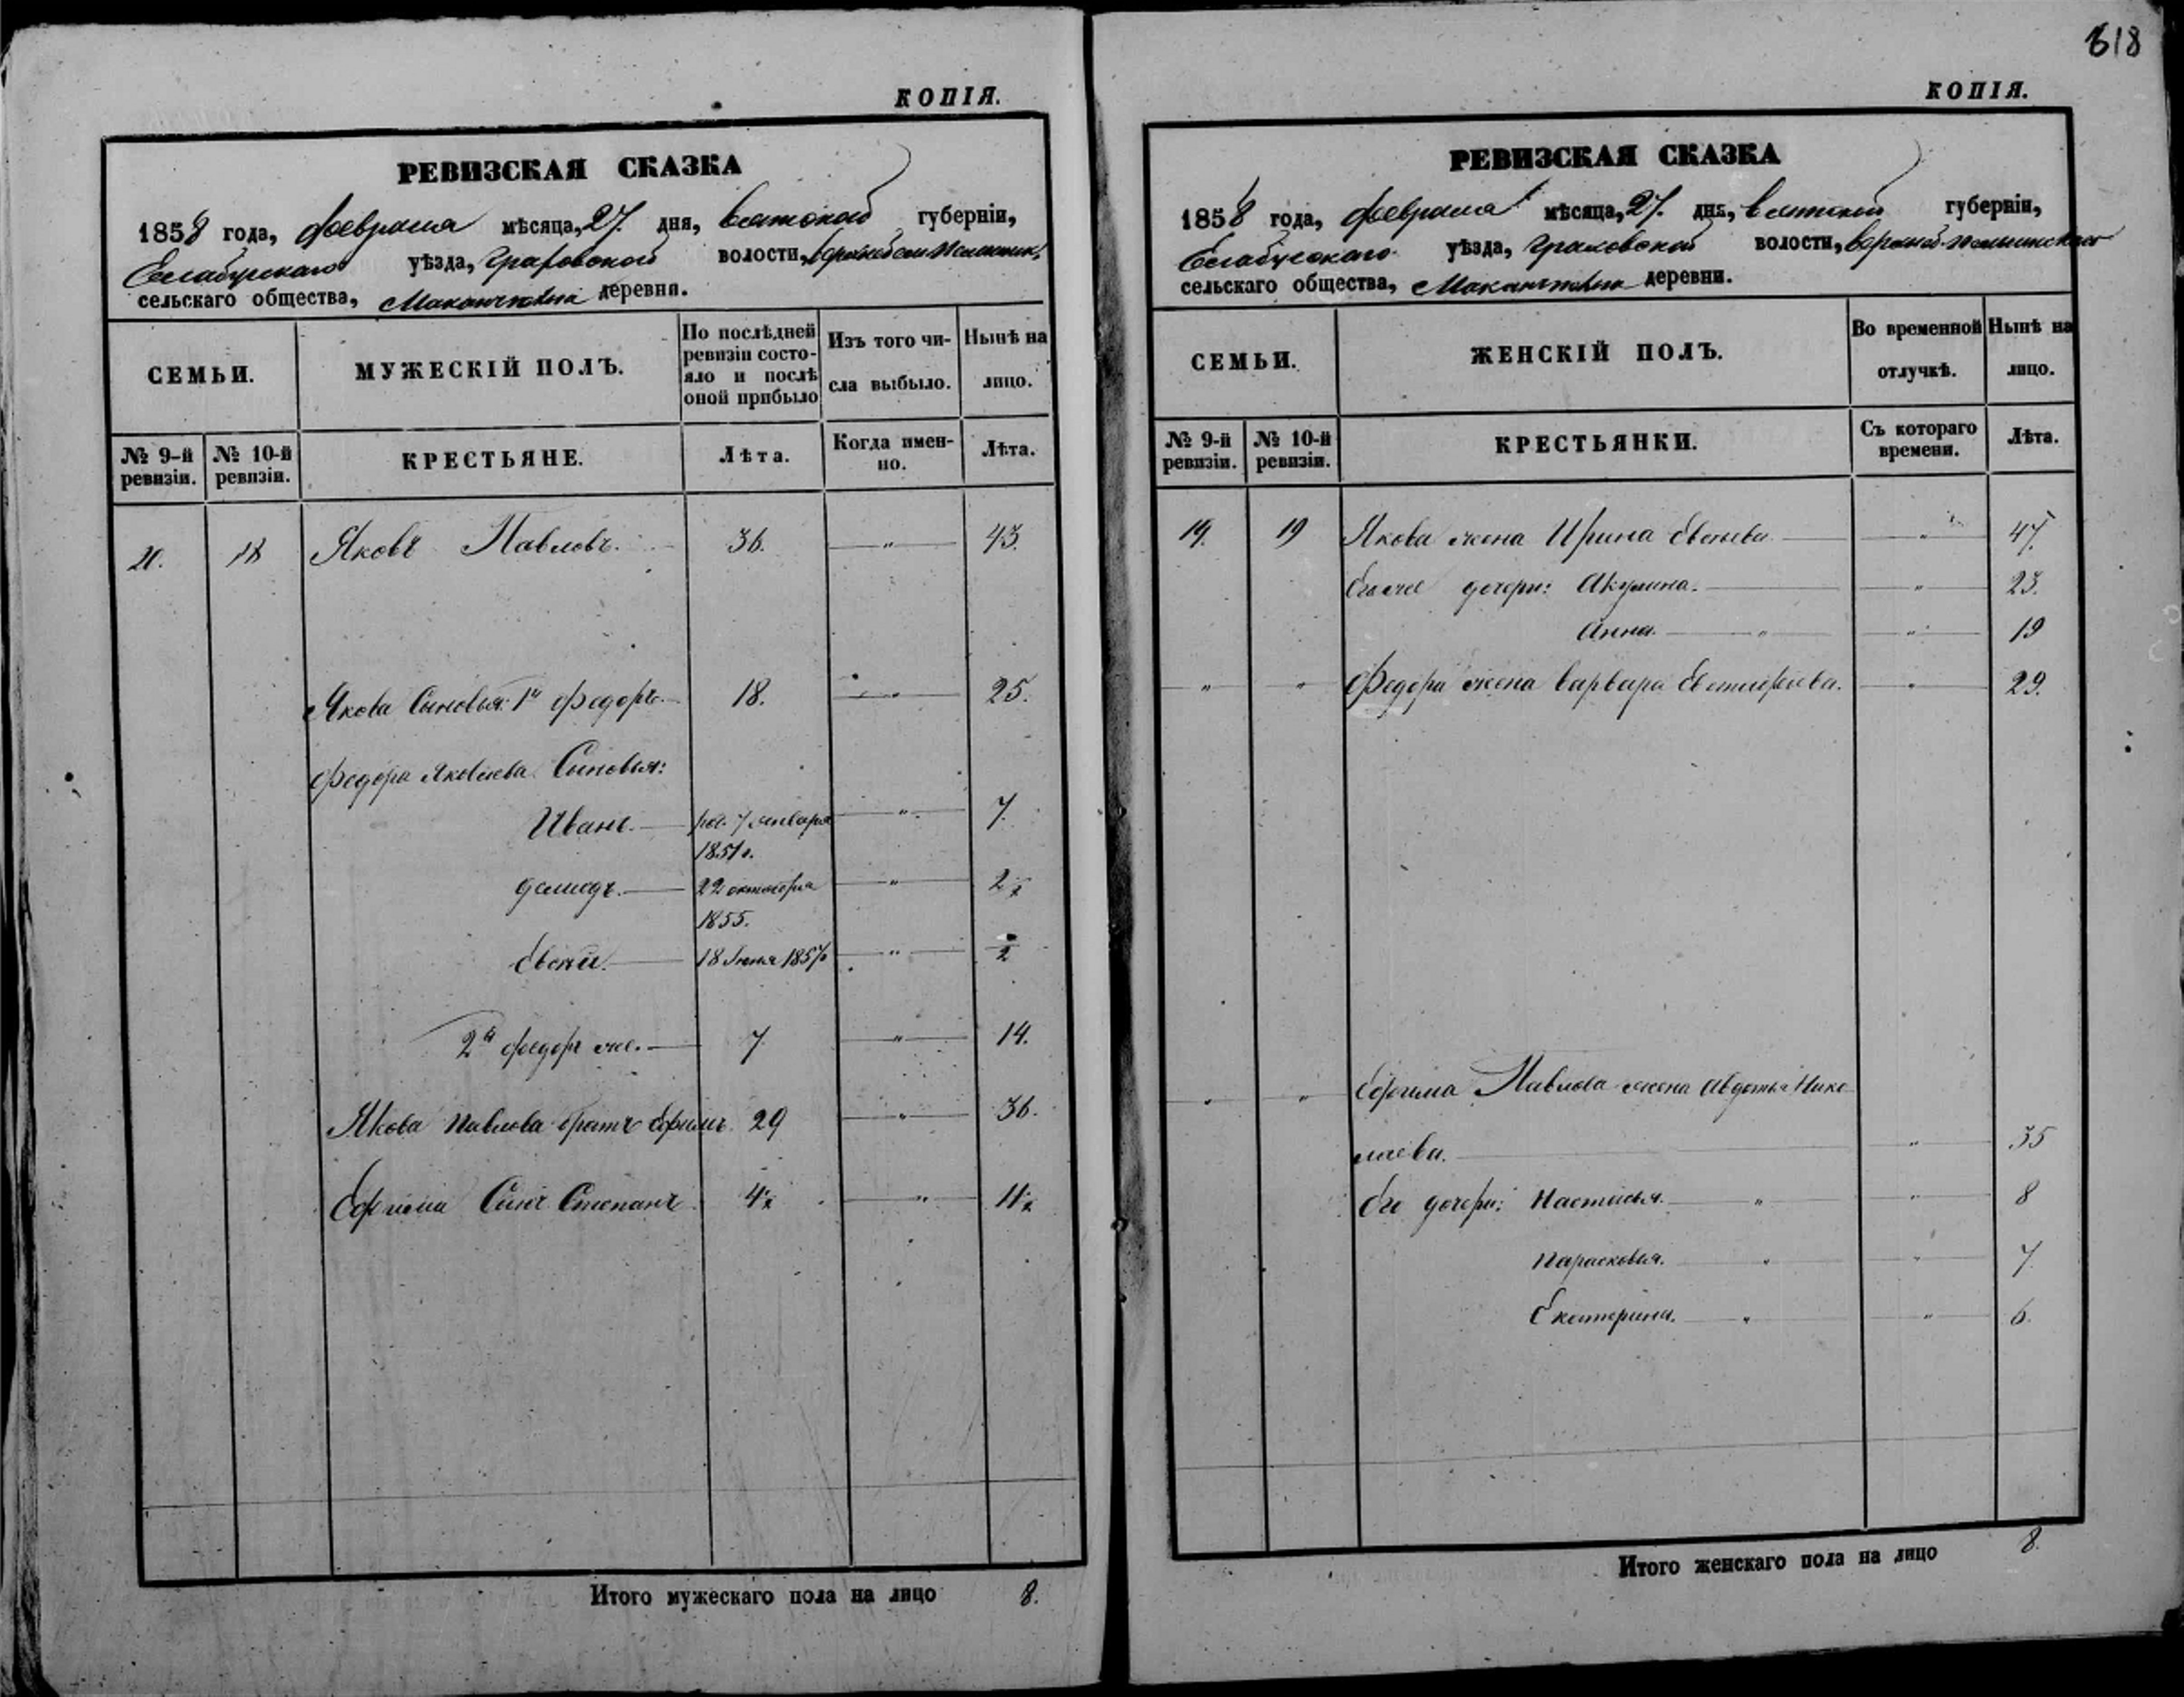 618
КОПІЯ.
РЕВИЗСКАЯ СКАЗКА
1858 года, февраля мѣсяца, 27. дня, Вятской губерніи,
Елабугскаго уѣзда, Граховской волости,
сельскаго общества, деревня.
СЕМЬИ.
МУЖЕСКІЙ ПОЛЪ.
По послѣдней ревизіи состо-
яло и послѣ
оной прибыло
Изъ того чи-
сла выбыло.
Нынѣ на
лицо.
№ 9-й
ревизіи.
№ 10-й
ревизіи.
КРЕСТЬЯНЕ.
Лѣта.
Когда имен-
но.
Лѣта.
18 Яковъ Павловъ. 36. — „ — 43.
Якова Сыновья: 1й Федоръ. 18. — „ — 25.
Федора Яковлева Сыновья:
Иванъ. — 7 января — „ — 7.
1851 г.
Демидъ. — 22 октября — „ — 2
1855.
— 18 Іюня 1857 — „ —
2й Федоръ же. — 7 — „ — 14.
Якова Павлова братъ Ефимъ. 29 — „ — 36.
Ефима Сынъ Степанъ. — „ —
Итого мужескаго пола на лицо 8.
КОПІЯ.
РЕВИЗСКАЯ СКАЗКА
1858 года, февраля мѣсяца, 27. дня, Вятской губерніи,
Елабугскаго уѣзда, Граховской волости,
сельскаго общества, деревни.
СЕМЬИ.
ЖЕНСКІЙ ПОЛЪ.
Во временной
отлучкѣ.
Нынѣ на
лицо.
№ 9-й
ревизіи.
№ 10-й
ревизіи.
КРЕСТЬЯНКИ.
Съ котораго
времени.
Лѣта.
19. 19 Якова жена Ирина — „ — 47.
Его же дочери: Акулина. — „ — 23.
Анна. — „ — „ — 19
„ „ Федора жена Варвара — „ — 29.
„ „ Ефима Павлова жена Авдотья Нико
лаева. — „ — 35
Его дочери: Настасья. — „ — „ — 8
Парасковья. — „ — „ — 7.
Екатерина. — „ — „ — 6.
Итого женскаго пола на лицо 8.